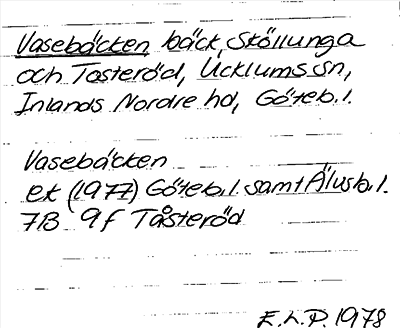 Vasebäcken bäck, Sköllunga
och Tasteröd, Ucklums sn,
Inlands Nordre hd, Göteb.l.
Vasebäcken
ek (1977) Göteb.l. samt Älvsb.l.
7B 9f Tåsteröd
E.L.P. 1978